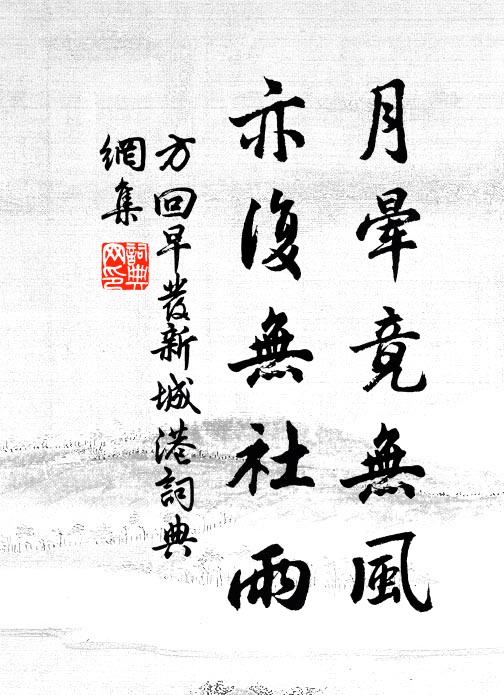 月暈竟無風
亦復無社雨
方回早發新城港詞典
網集
詞典
网印